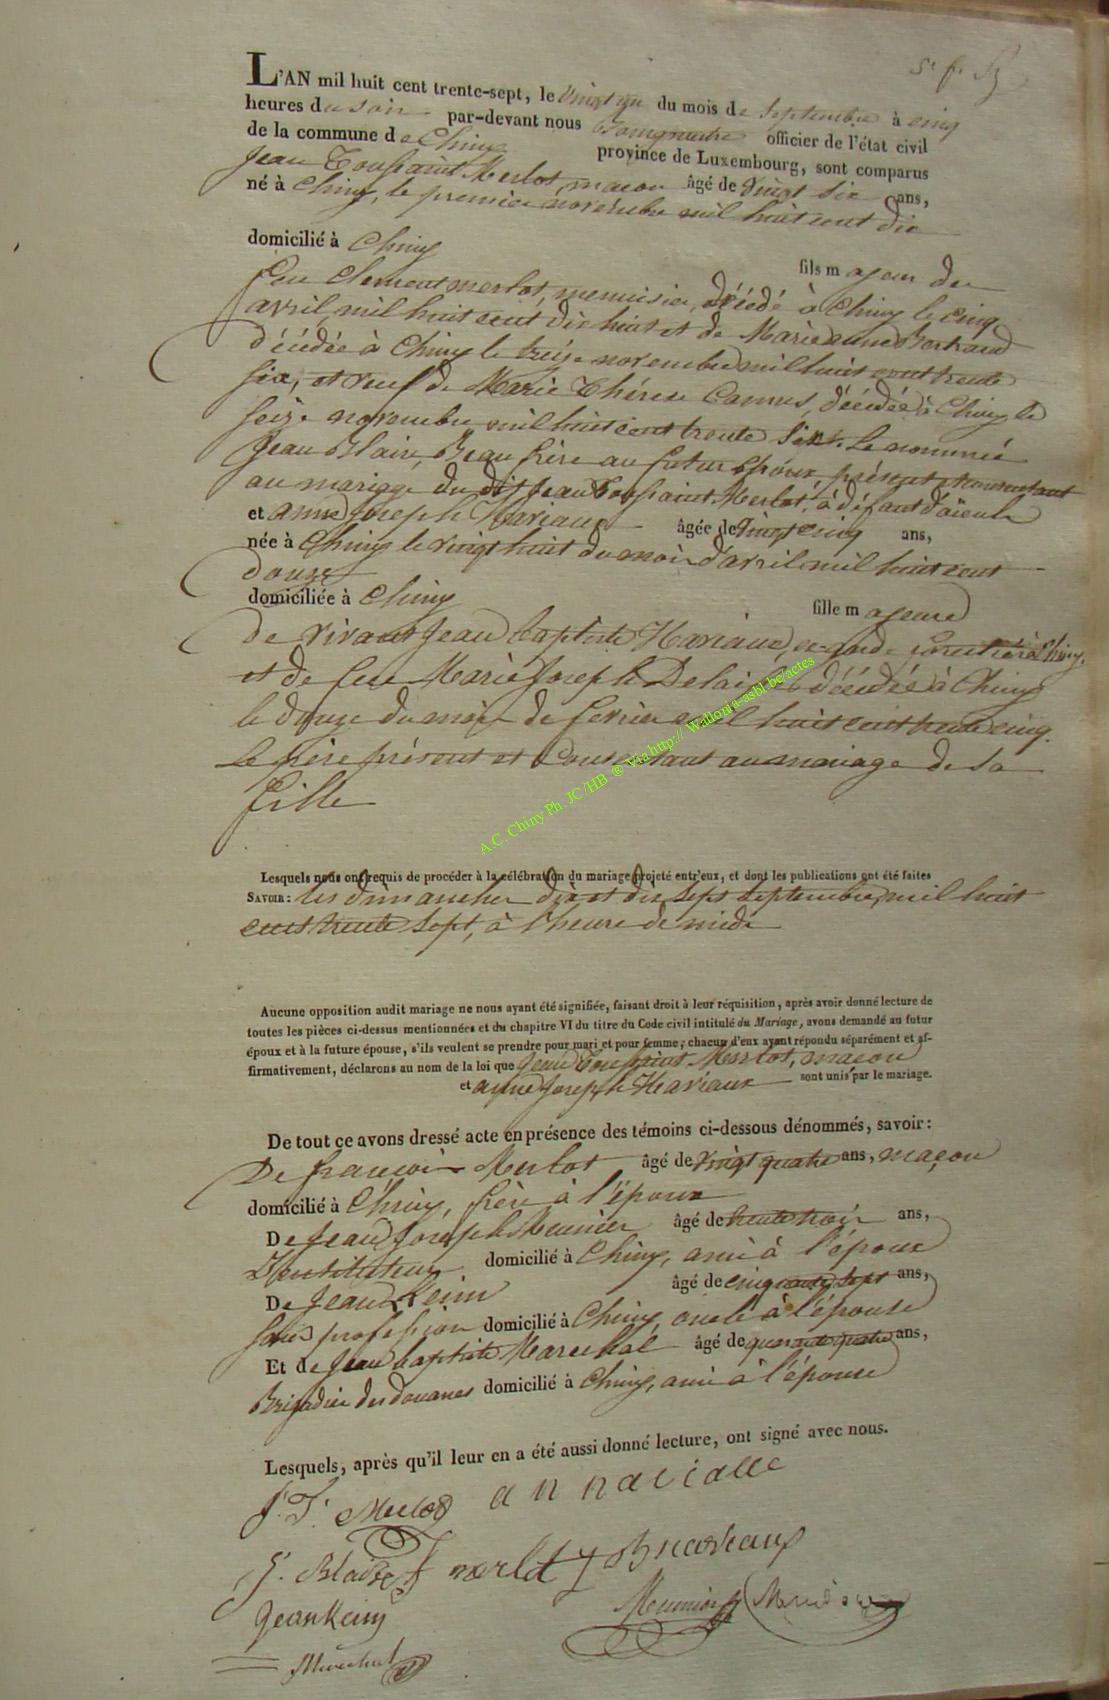 L'AN mil huit cent trente-sept, le vingt un du mois de Septembre à cinq
heures du soir par-devant nous Bourgmestre officier de l'état civil
de la commune de Chiny province de Luxembourg, sont comparus
Jean Toussaint Merlot, maçon âgé de vingt six ans,
né à Chiny, le premier novembre mil huit cent dix
domicilié à Chiny
fils majeur de
feu Clement merlot, menuisier, décédé à Chiny le cinq
avril, mil huit cent dix huit et de Marie anne Bertrand
décédée à Chiny le treize novembre mil huit cent trente
six, et veuf de Marie Thérèse Camus, décédée à Chiny le
seize novembre mil huit cent trente six. Le nommé
Jean Blaise, Beau frère au futur époux, présent et consentant
au mariage du dit Jean Toussaint Merlot, à défaut d'aïeuls
et anne Joseph Hariaux âgée de vingt cinq ans,
née à Chiny le vingt huit du mois d'avril mil huit cent
douze
domiciliée à Chiny fille majeure
de vivant Jean baptiste Hariaux, garde forestier à Chiny,
et de feu Marie Joseph décédée à Chiny
le douze du mois de fevrier mil huit cent trente cinq.
Le père présent et Consentant au mariage de sa
fille
A.C. Chiny Ph. JC/HB ® Via http://Wallonia-asbl.be/actes
Lesquels nous ont requis de procéder à la célébration du mariage projeté entr'eux, et dont les publications ont été faites
SAVOIR : les dimanches dix et dix sept septembre, mil huit
cent trente sept, à l'heure de midi
Aucune opposition audit mariage ne nous ayant été signifiée, faisant droit à leur réquisition, après avoir donné lecture de
toutes les pièces ci-dessus mentionnées et du chapitre VI du titre du Code civil intitulé du Mariage, avons demandé au futur
époux et à la future épouse, s'ils veulent se prendre pour mari et pour femme; chacun d'eux ayant répondu séparément et af-
firmativement, déclarons au nom de la loi que Jean Toussaint Merlot, maçon
et anne Joseph Hariaux sont unis par le mariage.
De tout ce avons dressé acte en présence des témoins ci-dessous dénommés, savoir :
De françois Merlot âgé de vingt quatre ans, maçon
domicilié à Chiny, frère à l'époux
De Jean Joseph Meunier âgé de trente trois ans,
Instituteur domicilié à Chiny, ami à l'époux
De Jean Keim âgé de cinquante sept ans,
sans profession domicilié à Chiny, oncle à l'épouse
Et de Jean baptiste Marechal âgé de quarante quatre ans,
Brigadier des douanes domicilié à Chiny, ami à l'épouse
Lesquels, après qu'il leur en a été aussi donné lecture, ont signé avec nous.
J. T. Merlot
J. Blaise f merlot
Jean Keim Meunier
Maréchal